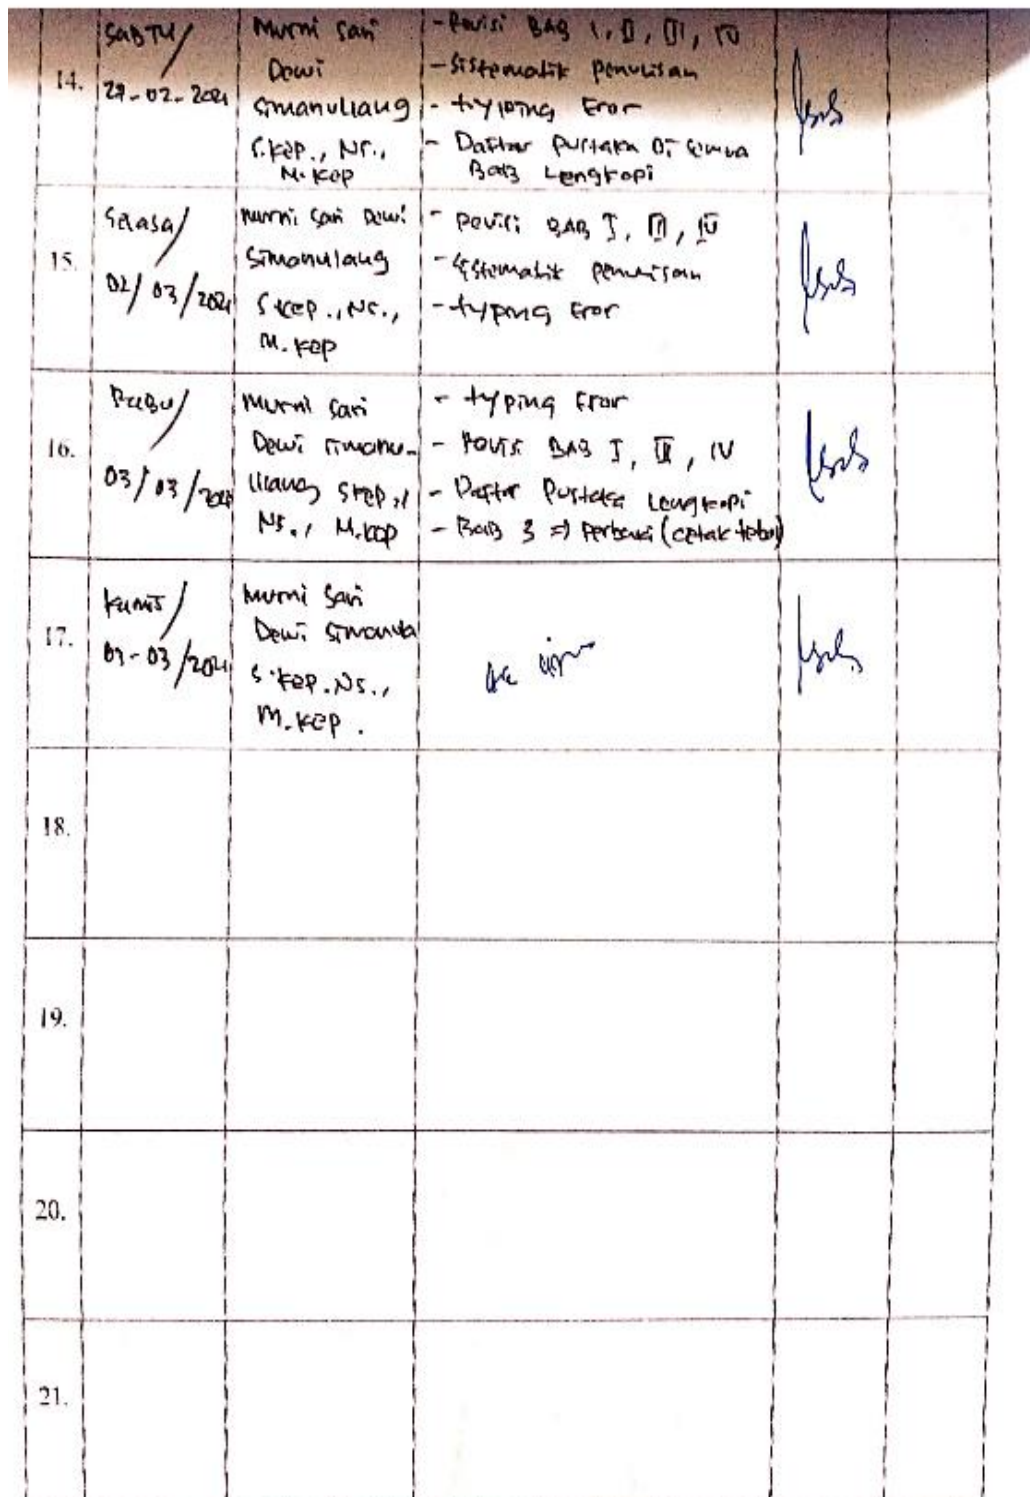 14.
SABTU/
27-02-2021
Murni Sari
Dewi
Simanullang
S.Kep., Ns.,
M.Kep
- Revisi BAB I, II, III, IV
- Sistematik penulisan
- typing Eror
- Daftar Pustaka Di semua
BAB Lengkapi
15.
Selasa/
02/03/2021
Murni Sari Dewi
Simanulang
S.Kep., Ns.,
M.Kep
- Revisi BAB I, III, IV
- Sistematik penulisan
- typing Eror
16.
Rabu/
03/03/2021
Murni Sari
Dewi Simanu-
llang S.Kep.,
Ns., M.Kep
- typing Eror
- Revisi BAB I, III, IV
- Daftar Pustaka Lengkapi
- BAB 3 => Perbaiki (cetak tebal)
17.
Kamis/
04-03/2021
Murni Sari
Dewi Simanulla
S.Kep.Ns.,
M.Kep.
Acc
18.
19.
20.
21.